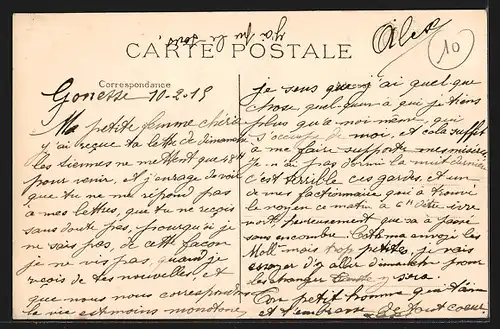 y a pu le
Alex
10
CARTE POSTALE
Correspondance
Gonesse 10-2-15
Ma petite femme chérie
j'ai reçue ta lettre de dimanche
les tiennes ne mettent que 48 H
pour venir, et j'enrage de voir
que tu ne me répond pas
à mes lettres, que tu ne reçois
sans doute pas, pourquoi je
ne sais pas, de cette façon
je ne vis pas, quand je
reçois de tes nouvelles et
que nous nous correspondons
la vie est moins monotone,
je sens que j'ai quelque
chose, quelqu'un à qui je tiens
plus qu'à moi-même, qui
s'occupe de moi, et cela suffit
à me faire supporter mes misères
Je n'ai pas dormi la nuit dernière
c'est terrible ces gardes, et un
de mes factionnaire qui à trouvé
le moyen ce matin à 6 H d'être ivre
mort, heureusement que sa à passé
sans encombre. m'a envoyé les
Moll mais trop petites, je vais
essayer d'y aller dimanche pour
les changer
Ton petit homme qui t'aime
et t'embrasse de tout coeur